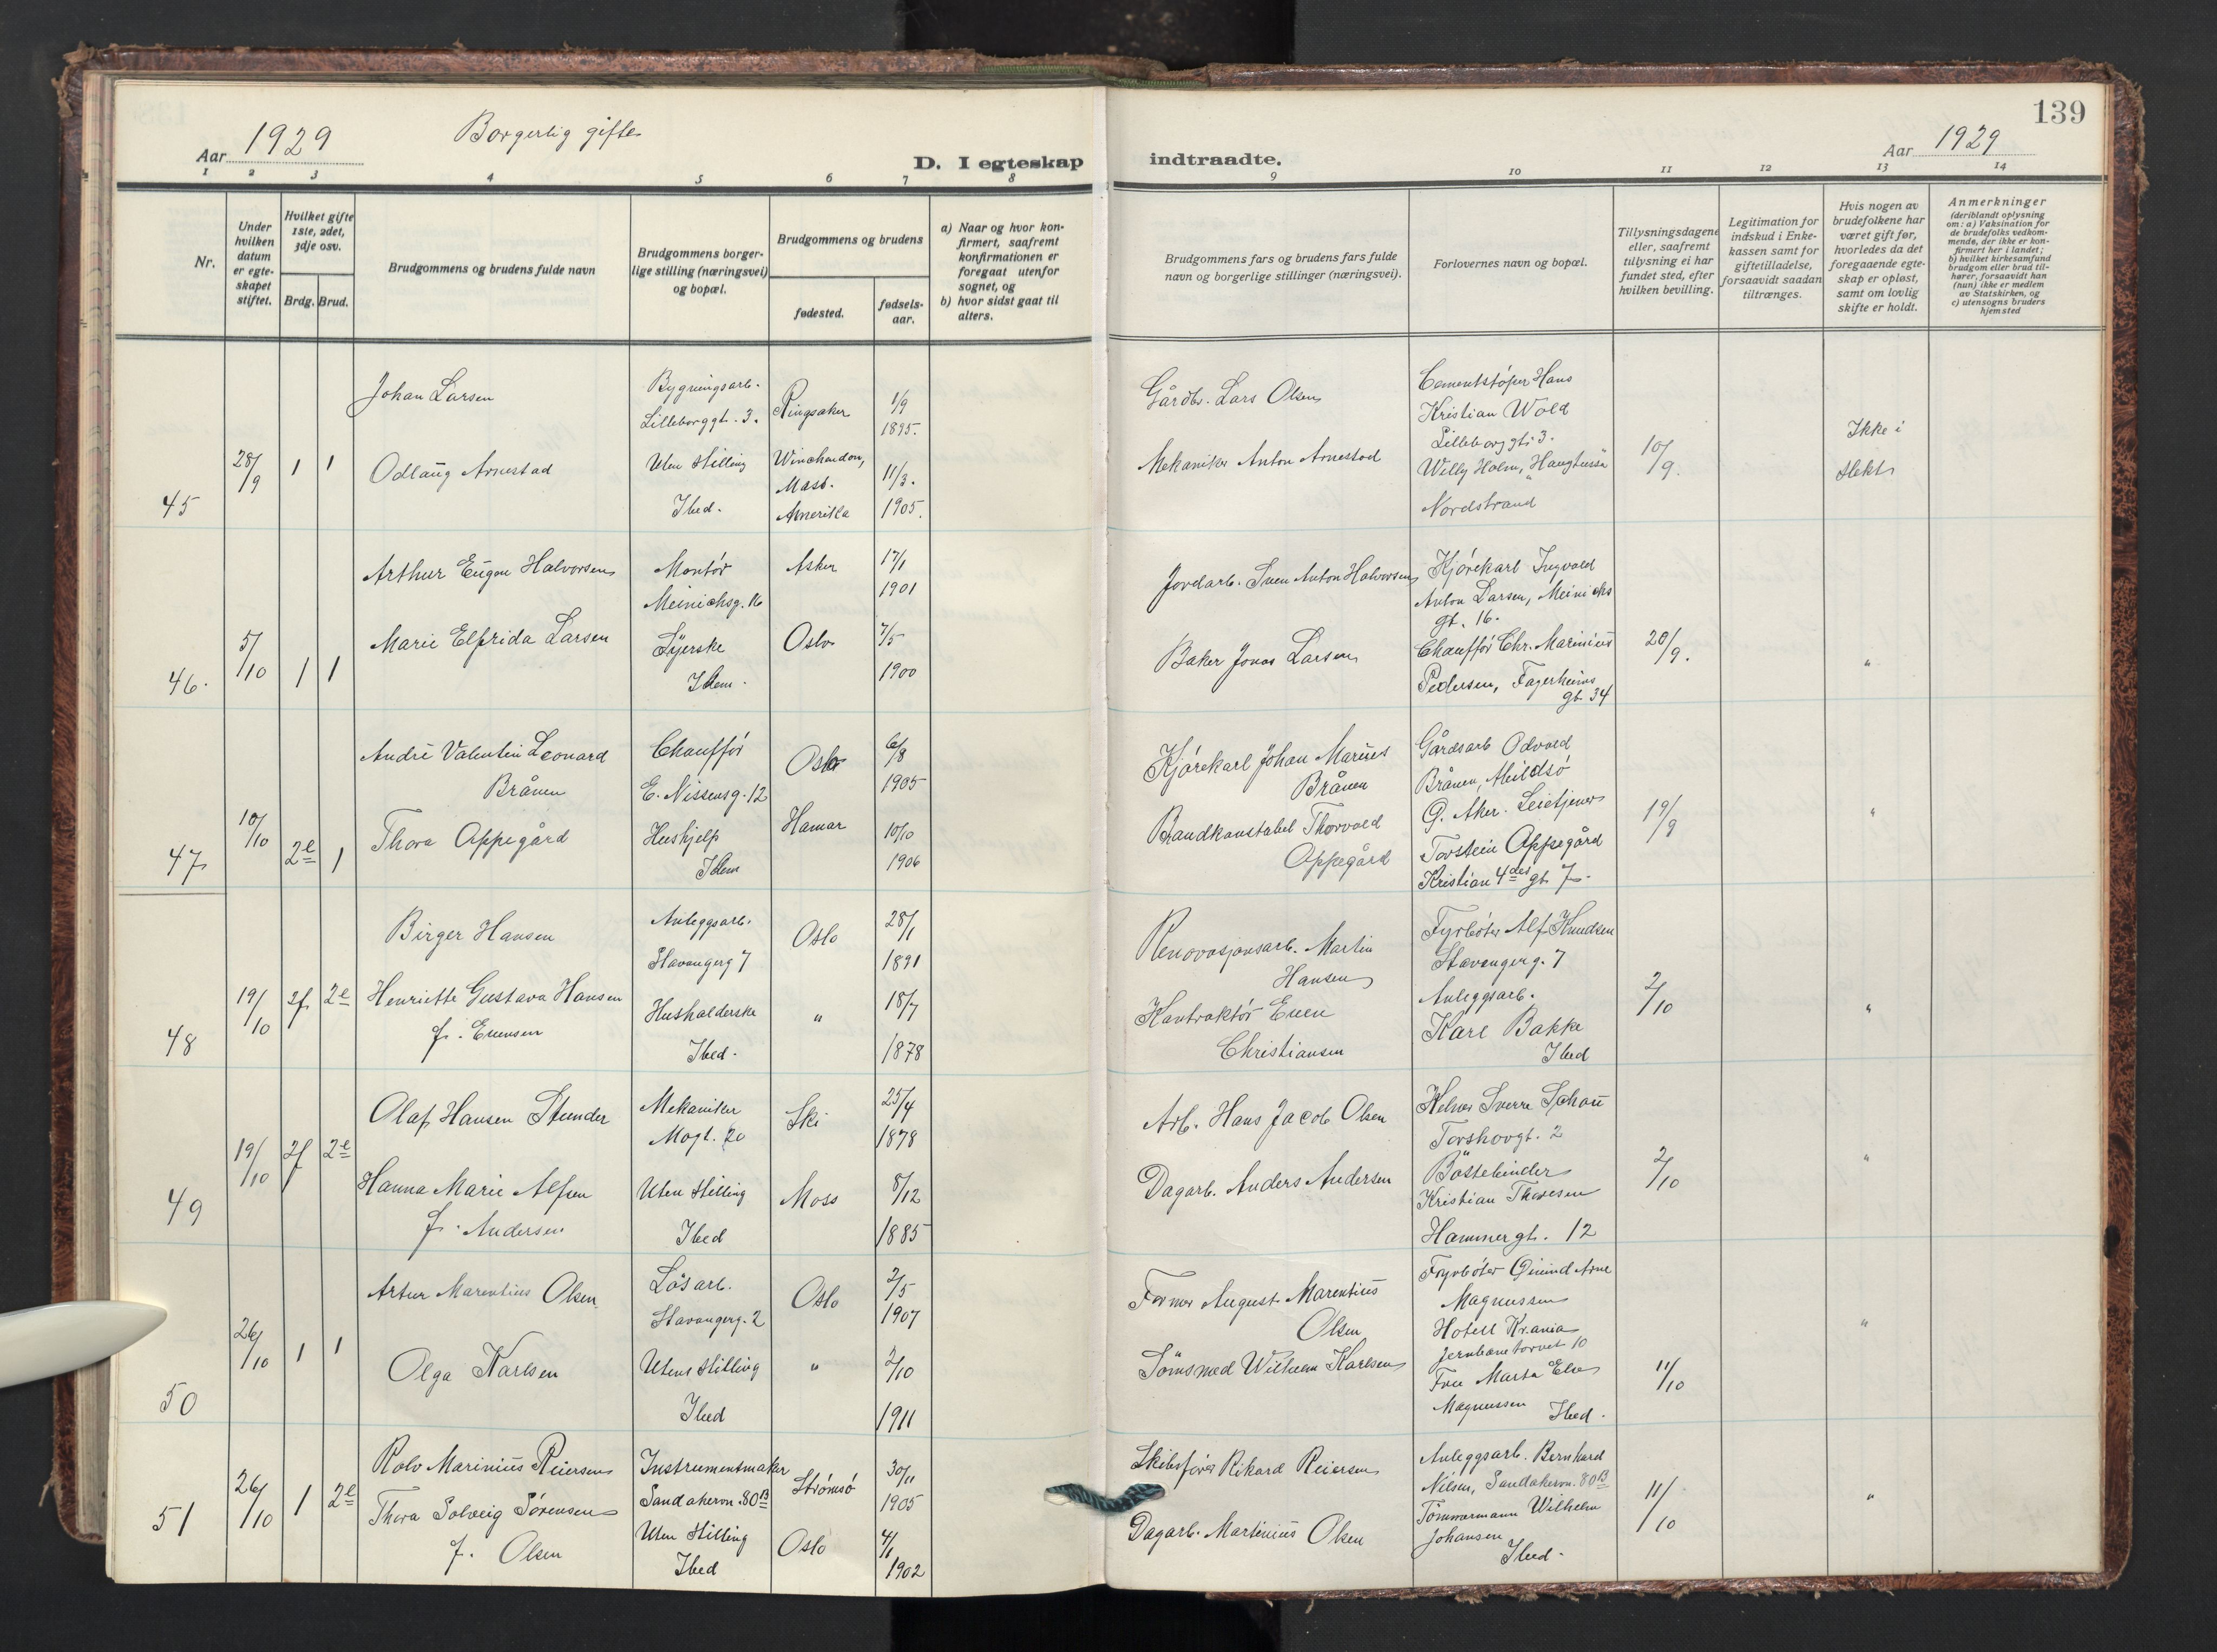 139
Aar 1929
Borgerlig gifte
D. I egteskap
indtraadte.
Aar 1929
1 2 3 4 5 6 7 8
9 10 11 12 13 14
Nr.
Under
hvilken
datum
er egte-
skapet
stiftet.
Hvilket gifte
1ste, 2det,
3dje osv.
Brdg. Brud.
Brudgommens og brudens fulde navn
Brudgommens borger-
lige stilling (næringsvei)
og bopæl.
Brudgommens og brudens
fødested.
fødsels-
aar.
a) Naar og hvor kon-
firmert, saafremt
konfirmationen er
foregaat utenfor
sognet, og
b) hvor sidst gaat til
alters.
Brudgommens fars og brudens fars fulde
navn og borgerlige stillinger (næringsvei).
Forlovernes navn og bopæl.
Tillysningsdagene
eller, saafremt
tillysning ei har
fundet sted, efter
hvilken bevilling.
Legitimation for
indskud i Enke-
kassen samt for
giftetilladelse,
forsaavidt saadan
tiltrænges.
Hvis nogen av
brudefolkene har
været gift før,
hvorledes da det
foregaaende egte-
skap er opløst,
samt om lovlig
skifte er holdt.
Anmerkninger
(deriblandt oplysning
om: a) Vaksination for
de brudefolks vedkom-
mende, der ikke er kon-
firmert her i landet;
b) hvilket kirkesamfund
brudgom eller brud til-
hører, forsaavidt han
(hun) ikke er medlem
av Statskirken, og
c) utensogns bruders
hjemsted
45
28/9
1 1
Johan Larsen
Bygningsarb.
Lilleborggt. 3.
Ringsaker
1/9
1895.
Odlaug Arnestad
Uten stilling
Ibid.
Winchendon,
Mass.
Amerika
11/3.
1905.
Gårdbr. Lars Olsen
Mekaniker Anton Arnestad
Cementstøper Hans
Kristian Wold
Lilleborggt. 3.
Willy Holm, "Haugtussa"
Nordstrand
10/9.
Ikke i
slekt
46.
5/10
1 1
Arthur Eugen Halvorsen
Montør
Meinichsg. 16
Asker
17/1
1901
Marie Elfrida Larsen
Syerske
Idem.
Oslo
7/5
1900
Jordarb. Sven Anton Halvorsen
Baker Jonas Larsen
Kjørekarl Ingvald
Anton Larsen, Meinichs
gt. 16.
Chauffør Chr. Marinius
Pedersen, Fagerheims
gt. 34
20/9.
"
47
10/10
2e 1
André Valentin Leonard
Brånen
Chauffør
E. Nissensg. 12
Oslo
6/8
1905
Thora Oppegård
Hushjelp
Idem
Hamar
10/10
1906
Kjørekarl Johan Marius
Brånen
Brandkonstabel Thorvald
Oppegård
Gårdsarb Odvald
Brånen, Mildsø
Ø. Aker. Leietjener
Torstein Oppegård
Kristian 4des gt. 7.
19/9
"
48
19/10
2f 2e
Birger Hansen
Anleggsarb.
Stavangerg 7
Oslo
28/1
1891
Henriette Gustava Hansen
f. Evensen
Husholderske
Ibid.
"
18/7
1878
Renovasjonsarb. Martin
Hansen
Kontraktør Even
Christiansen
Fyrbøter Alf Knudsen
Stavangerg. 7
Anleggsarb.
Karl Bakke
Ibid
2/10
"
49
19/10
2f 2e
Olaf Hansen Stunder
Mekaniker
Mogt. 20
Ski
25/4
1878
Hanna Marie Alfsen
f. Andersen
Uten stilling
Ibid
Moss
8/12
1885
Arb. Hans Jacob Olsen
Dagarb. Anders Andersen
Kelner Sverre Schou
Torshovgt. 2
Børstebinder
Kristian Thoresen
Hammergt. 12
2/10
"
50
26/10
1 1
Artur Marentius Olsen
Løsarb.
Stavangerg. 2
Oslo
2/5
1907
Olga Karlsen
Uten stilling
Ibid
"
2/10
1911
Former August Marentius
Olsen
Sømsmed Wilhelm Karlsen
Fyrbøter Arne
Magnussen
Hotell Kr.ania
Jernbanetorvet 10
Fru Marta
Magnussen Ibid.
11/10
"
51
26/10
1 2e
Rolv Marinius Reiersen
Instrumentmaker
Sandakervn. 80B
Strømsø
30/11
1905
Thora Solveig Sørensen
f. Olsen
Uten stilling
Ibid
Oslo
4/1
1902
Skibsfører Rikard Reiersen
Dagarb. Martinius Olsen
Anleggsarb. Bernhard
Nilsen, Sandakervn. 80B
Tømmermann Wilhelm
Johansen
Ibid.
11/10
"